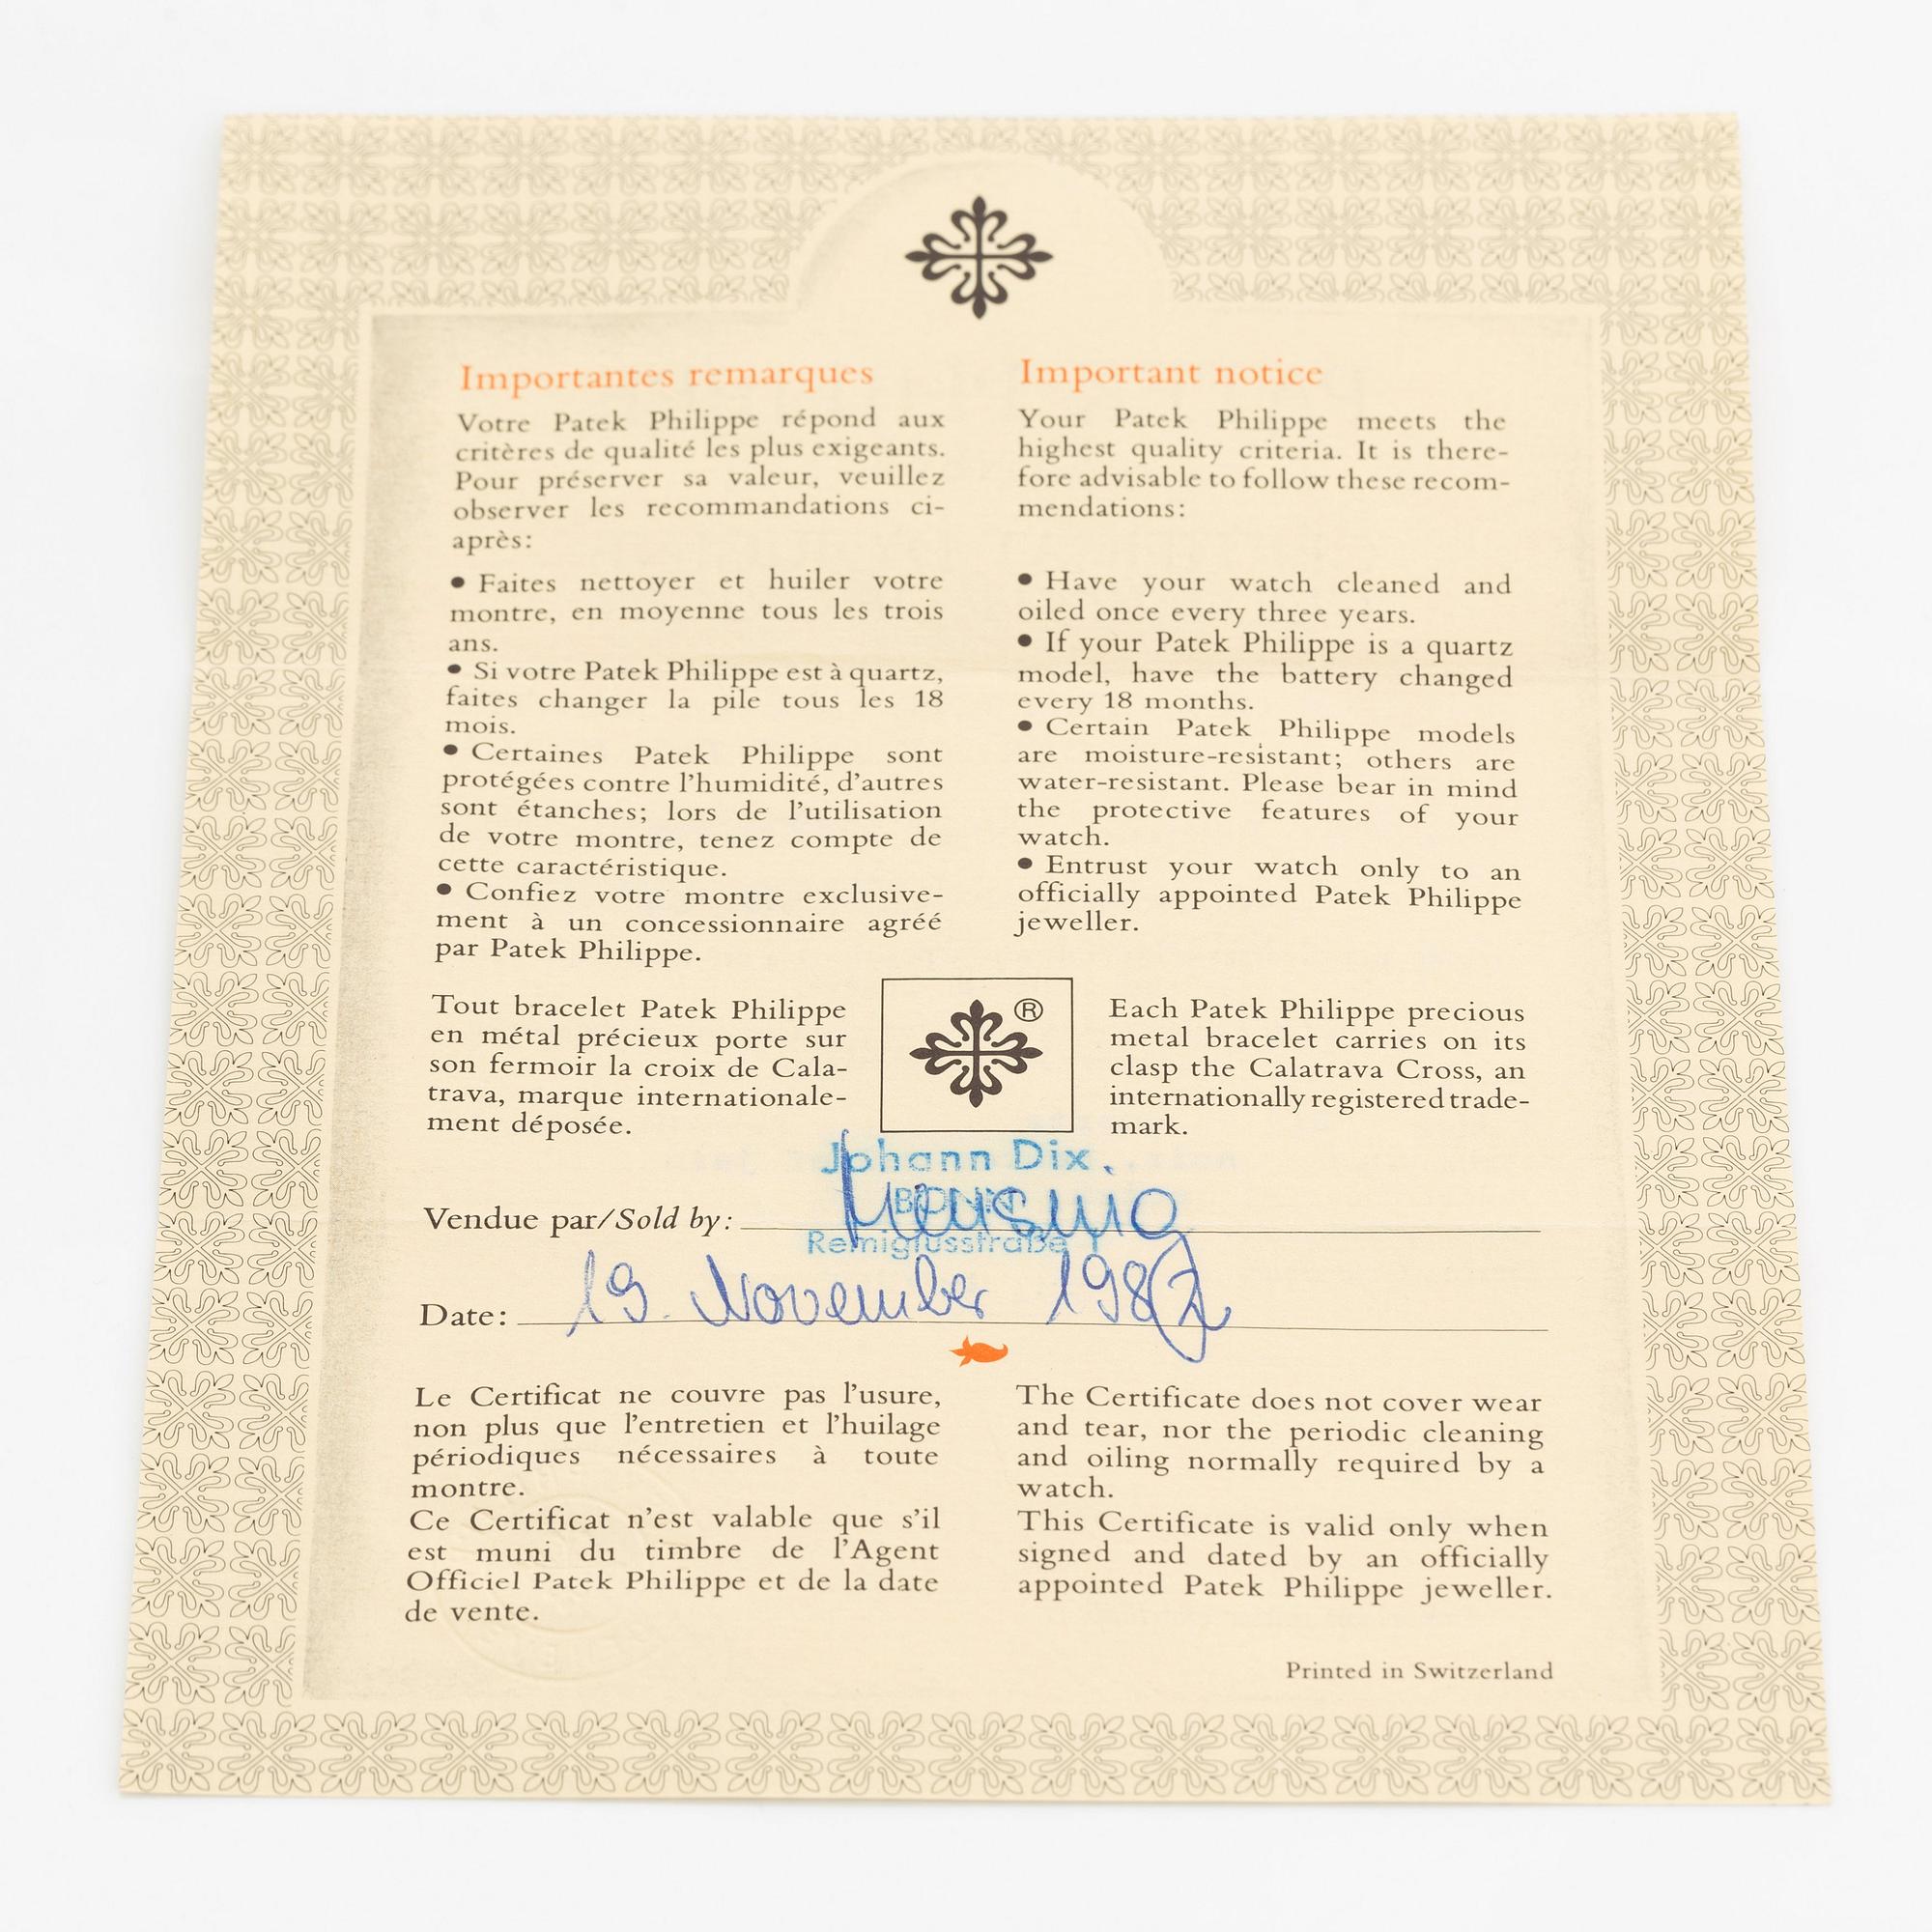 Importantes remarques
Votre Patek Philippe répond aux
critères de qualité les plus exigeants.
Pour préserver sa valeur, veuillez
observer les recommandations ci-
après:
• Faites nettoyer et huiler votre
montre, en moyenne tous les trois
ans.
• Si votre Patek Philippe est à quartz,
faites changer la pile tous les 18
mois.
• Certaines Patek Philippe sont
protégées contre l'humidité, d'autres
sont étanches; lors de l'utilisation
de votre montre, tenez compte de
cette caractéristique.
• Confiez votre montre exclusive-
ment à un concessionnaire agréé
par Patek Philippe.
Important notice
Your Patek Philippe meets the
highest quality criteria. It is there-
fore advisable to follow these recom-
mendations:
• Have your watch cleaned and
oiled once every three years.
• If your Patek Philippe is a quartz
model, have the battery changed
every 18 months.
• Certain Patek Philippe models
are moisture-resistant; others are
water-resistant. Please bear in mind
the protective features of your
watch.
• Entrust your watch only to an
officially appointed Patek Philippe
jeweller.
Tout bracelet Patek Philippe
en métal précieux porte sur
son fermoir la croix de Cala-
trava, marque internationale-
ment déposée.
®
Each Patek Philippe precious
metal bracelet carries on its
clasp the Calatrava Cross, an
internationally registered trade-
mark.
Johann Dix
BONN
Vendue par/Sold by:
Remigiusstraße 1
Date: 19. November 1987
Le Certificat ne couvre pas l'usure,
non plus que l'entretien et l'huilage
périodiques nécessaires à toute
montre.
Ce Certificat n'est valable que s'il
est muni du timbre de l'Agent
Officiel Patek Philippe et de la date
de vente.
The Certificate does not cover wear
and tear, nor the periodic cleaning
and oiling normally required by a
watch.
This Certificate is valid only when
signed and dated by an officially
appointed Patek Philippe jeweller.
Printed in Switzerland